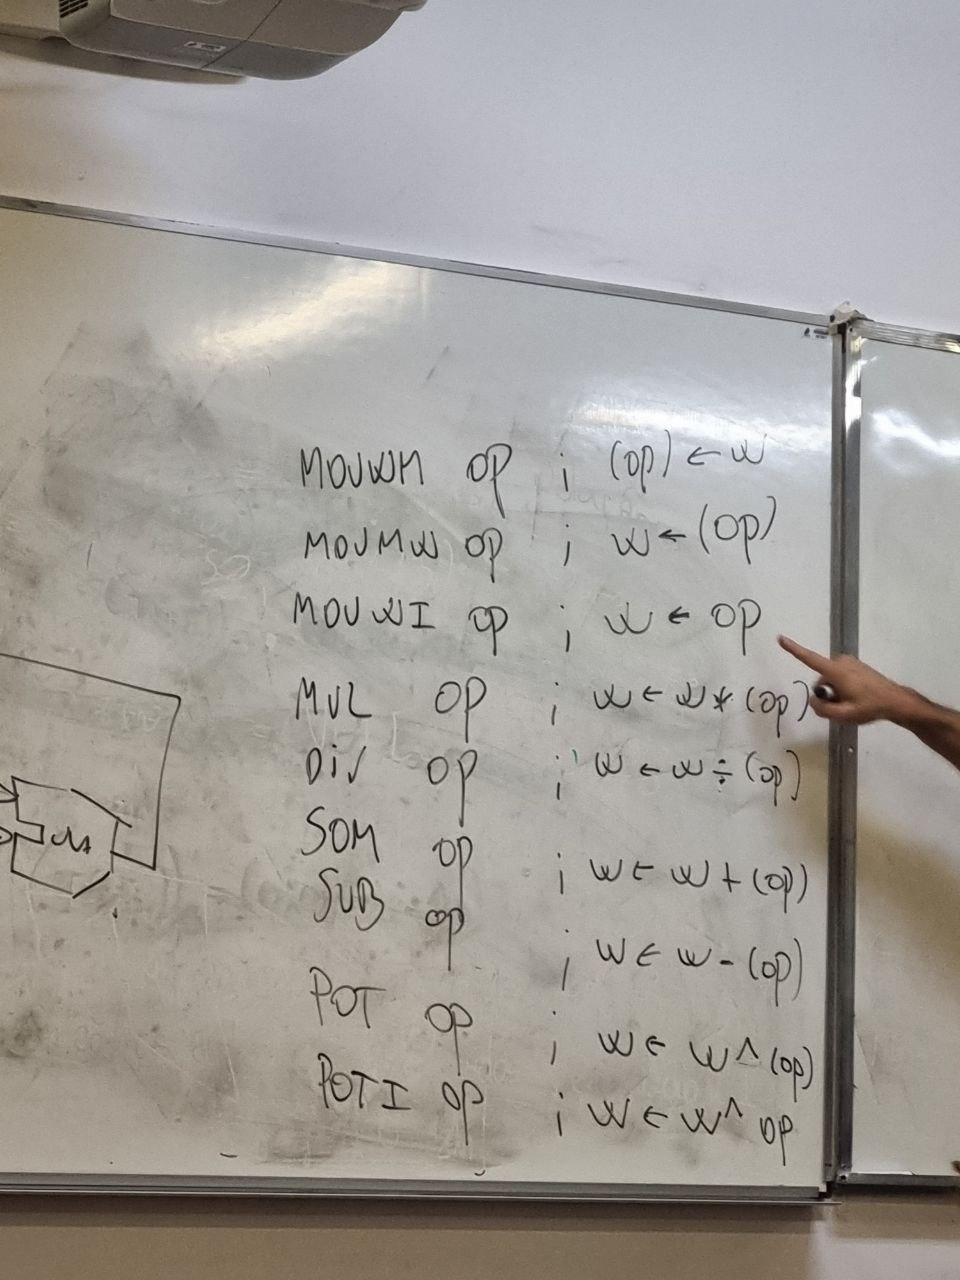 MOVWM op ; (op) ← W
MOVMW op ; W ← (op)
MOVWI op ; W ← op
MUL op ; W ← W * (op)
DIV op ; W ← W ÷ (op)
SOM op ; W ← W + (op)
SUB op ; W ← W - (op)
POT op ; W ← W ^ (op)
POTI op ; W ← W ^ op